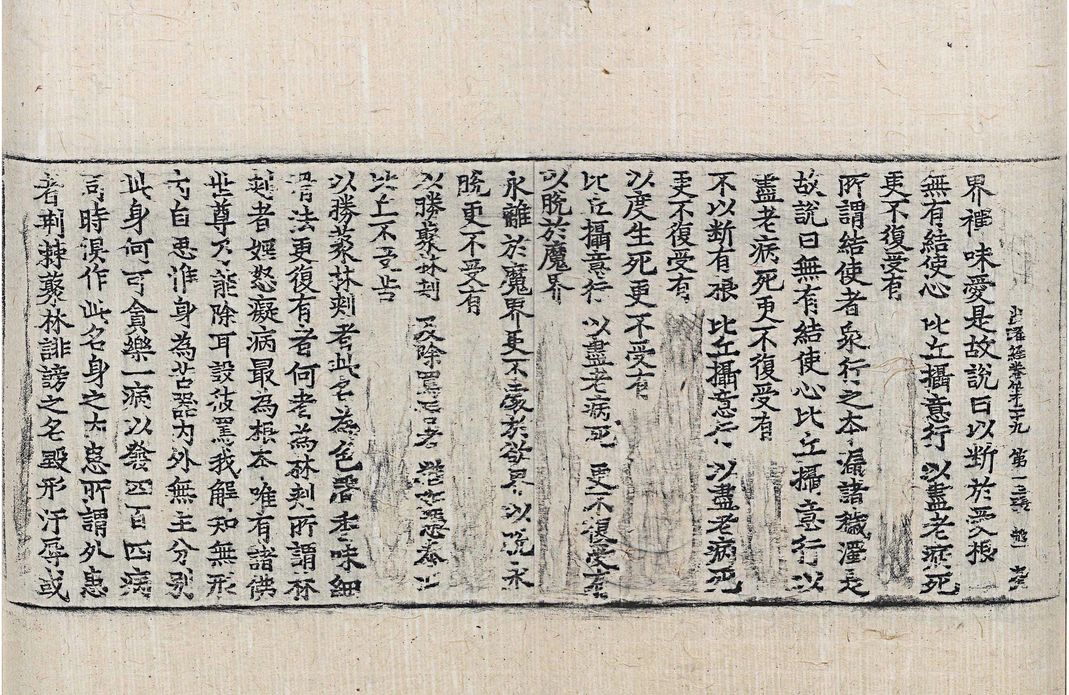 界種味愛是故說曰以斷於愛根
出曜經卷第二十九 第一三張
無有結使心 比丘攝意行 以盡老病死
更不復受有
所謂結使者衆行之本漏諸穢濁是
故說曰無有結使心比丘攝意行以
盡老病死更不復受有
不以斷有根 比丘攝意行 以盡老病死
更不復受有
以度生死更不受有
比丘攝意行 以盡老病死 更不復受有
以脫於魔界
永離於魔界更不處於欲界以脫永
脫更不受有
以勝叢林刺 及除罵詈者 猶在
比丘不受苦
以勝叢林刺者此名為色聲香味細
滑法更復有者何者為林刺所謂林
刺者婬怒癡病最為根本唯有諸佛
世尊乃能除耳設彼罵我解知無形
內自思惟身為苦器內外無主分別
此身何可貪樂一病以發四百四病
同時俱作此名身之大患所謂外患
者荊棘叢林誹謗之名毀形汙辱或